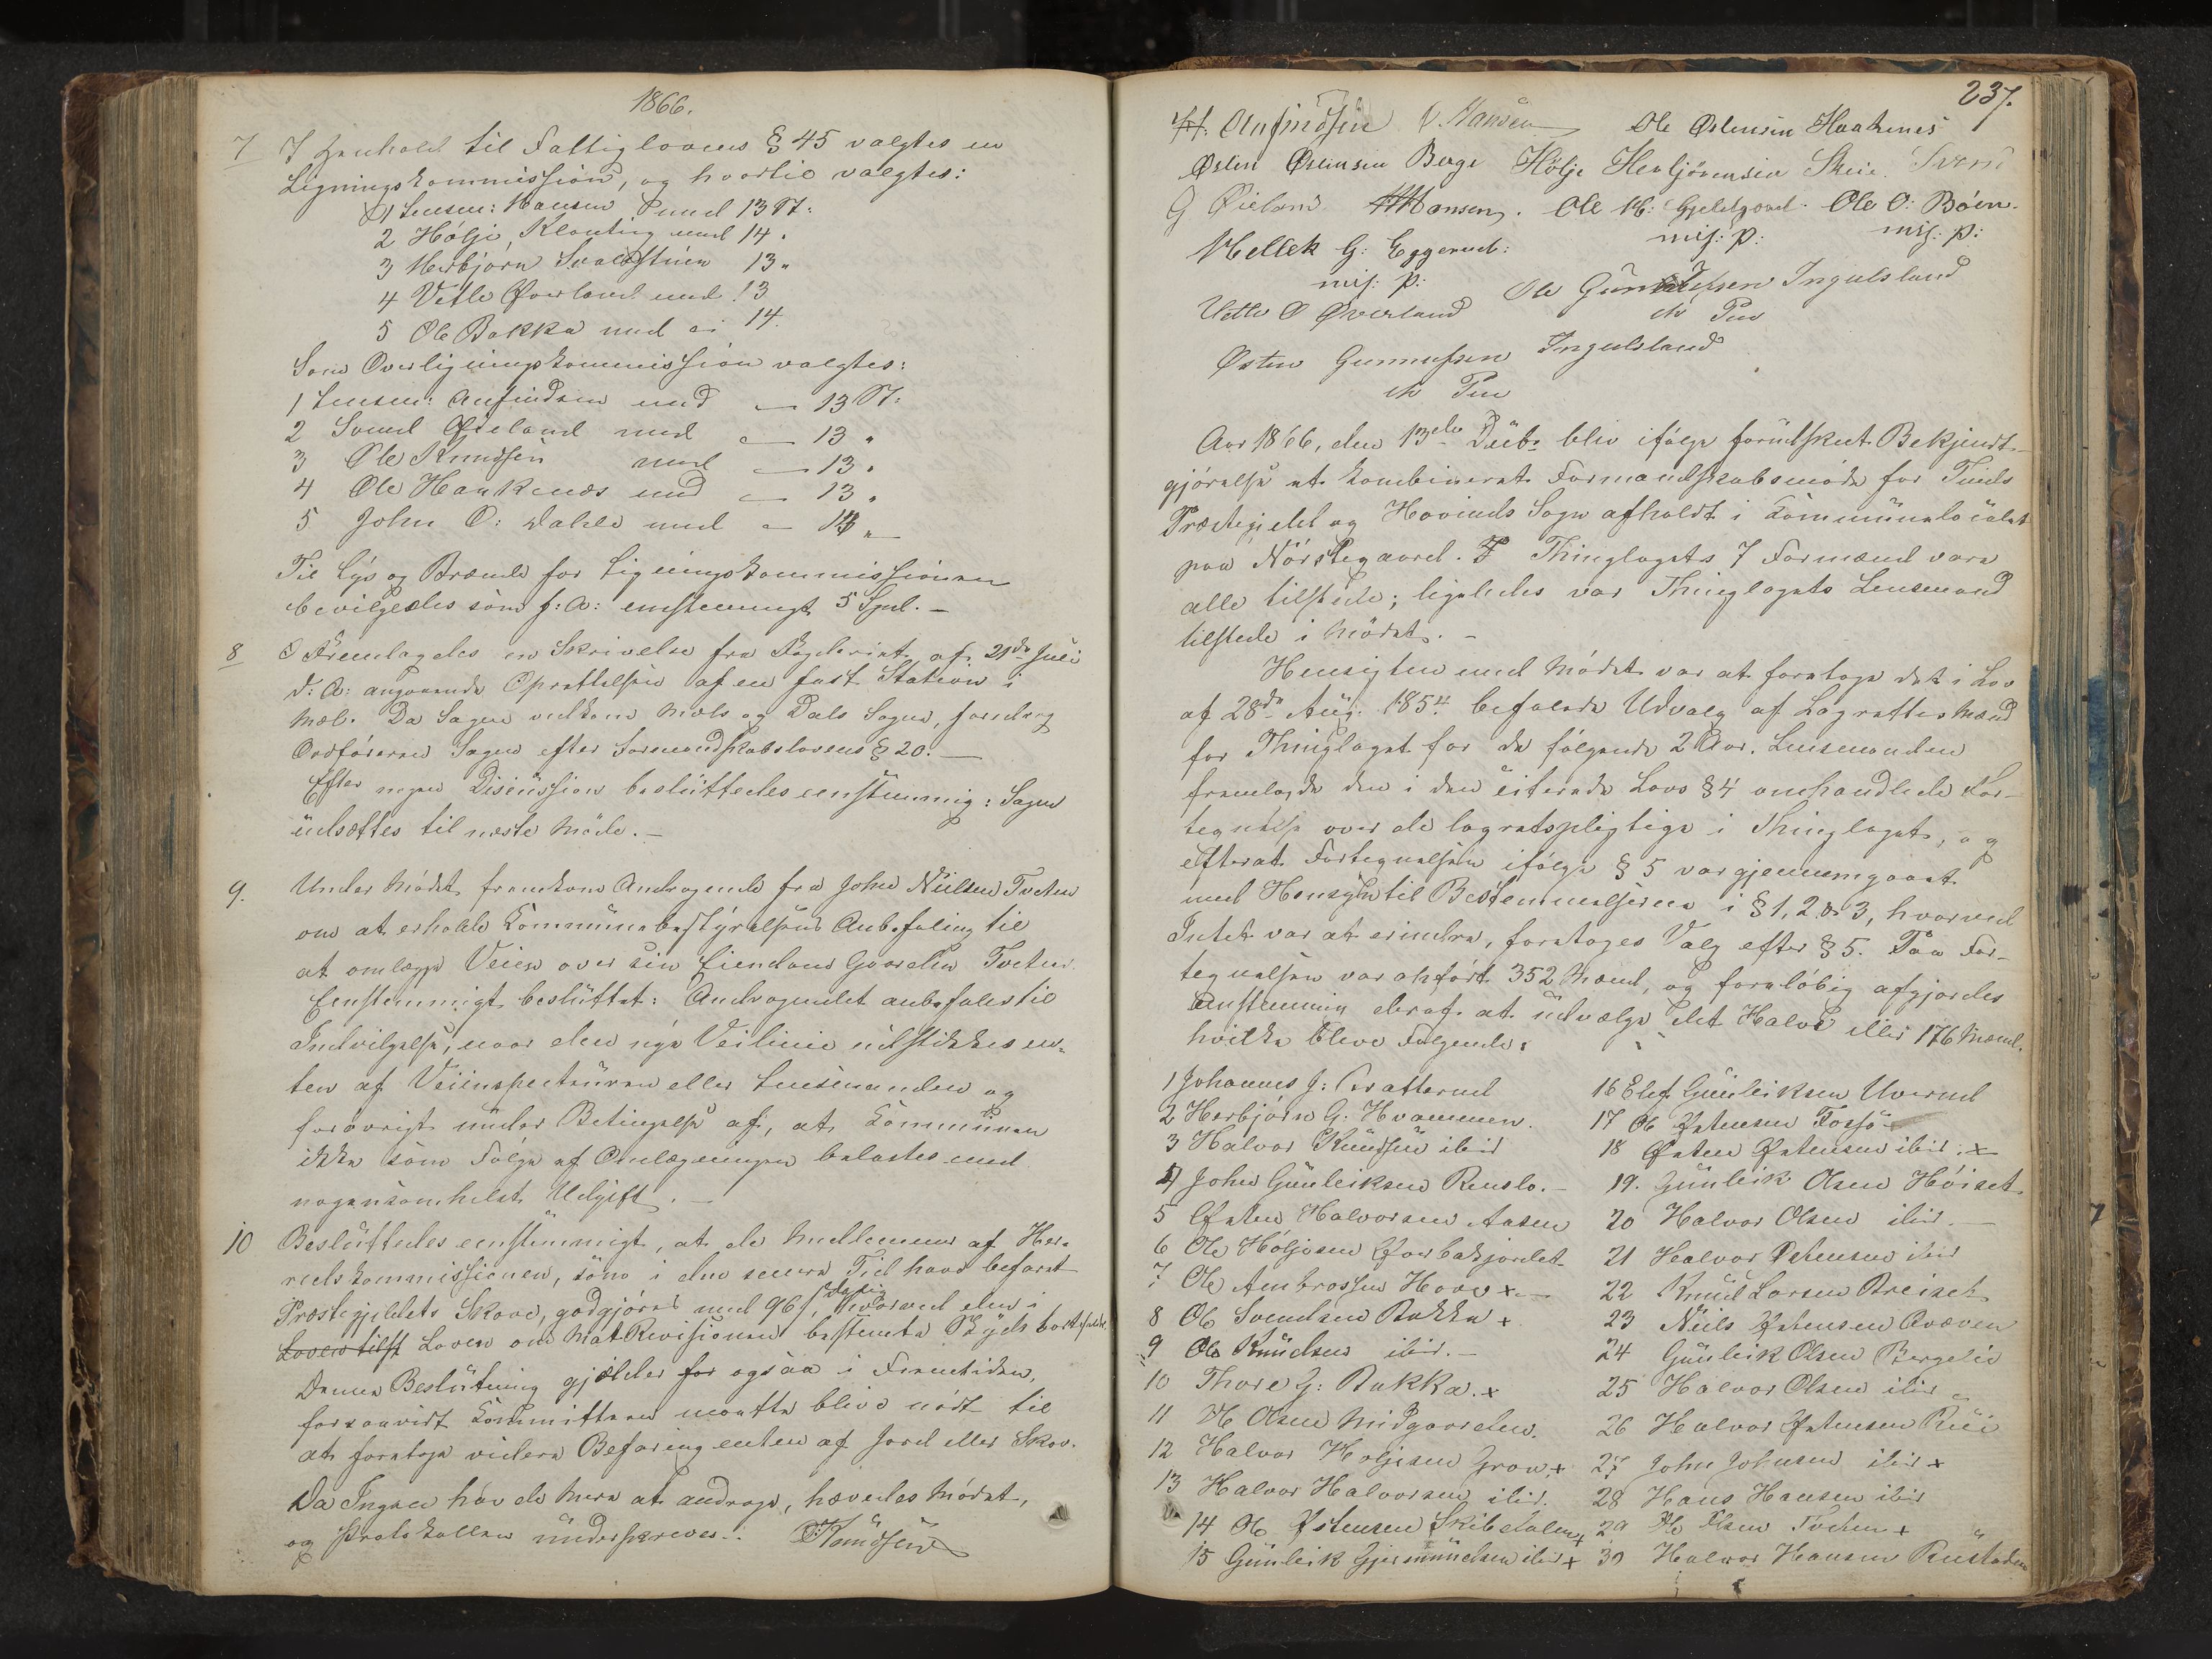 1866.
7 I Henhold til Fattiglovens § 45 valgtes en
Ligningskommission, og hvortil valgtes:
1 Lensm: Hansen med 13 St:
2 Hölje Klonteig med 14.
3 Herbjörn 13 "
4 Vetle Øverland med 13
5 Ole Bakka med 14.
Som Overligningskommission valgtes:
1 Lensm: Anfindsen med — 13 St:
2 Svend Øieland med — 13 "
3 Ole Knudsen med — 13 "
4 Ole Haakenæs med — 13 "
5 John O: Dahle med — 13 "
Til Lys og Brænde for Ligningskommissionen
bevilgedes som f: A: enstemmigt 5 Spd. —
8 Fremlagdes en Skrivelse fra Fogderiet af 21de Juli
d: A: angaaende Oprettelsen af en fast Station i
Mæl. Da Sagen vedkom Mæls og Dals Sogne,
Ordföreren Sagen efter Formandskabslovens § 20. —
Efter nogen Discüssion beslüttedes eenstemmig: Sagen
üdsættes til næste Möde. —
9. Under Mödet fremkom Andragende fra John Nielsen Tveten
om at erholde Kommünebestÿrelsens Anbefaling til
at omlægge Veien over sin Eiendom Gaarden Tveten.
Eenstemmigt beslüttet: Andragendet anbefales til
Indvilgelse, naar den nÿe Veilinie üdstikkes en-
ten af Veiinspecteüren eller Lensmanden og
forövrigt ünder Betingelse af, at Kommünen
ikke som Fölge af Omlægningen belastes med
nogensomhelst Udgift. —
10 Beslüttedes eenstemmigt, at de Medlemmer af Her-
redskommissionen, som i den senere Tid have befaret
Præstegjeldets Skove, godgjöres med 96 s. daglig, hvorved den i
Loven om MatRevisionen bestemte Skÿds bortfalder.
Denne Beslütning gjælder for ogsaa i Fremtiden,
forsaavidt Kommitteen maatte blive nödt til
at foretage videre Befaring enten af Jord eller Skov.
Da Ingen havde mere at andrage, hævedes Mödet,
og Protokollen ünderskreves. OKnüdsen
237.
H: Anfindsen O. Hansen Ole Østensen Haakenes
Østen Østensen Berge Hölje Herbjörnsen Skeie. Svend
G Øieland HHansen. Ole H: Gjeldgaard. Ole O: Böen.
Mellek G: Eggerud: mS: p: mS: p:
mS: p: Ole Gunnlefsen Ingulsland
Vetle O Øverland m Pen
Østen Gunnufsen Ingulsland
m Pen
Aar 1866, den 13de Decbr blev ifölge forüdskeet Bekjendt-
gjörelse et kombineret Formandskabsmöde for Tinds
Præstegjeld og Hovinds Sogn afholdt i Kommünelocalet
paa Nörstegaard. Thinglagets 7 Formænd vare
alle tilstede; ligeledes var Thinglagets Lensmand
tilstede i Mödet. —
Hensigten med Mödet var at foretage det i Lov
af 28de Aüg. 1854 befalede Udvalg af Lagrettesmænd
for Thinglaget for de fölgende 2 Aar. Lensmanden
fremlagde den i den citerede Lovs § 4 omhandlede For-
tegnelse over de lagretspligtige i Thinglaget, og
efterat Fortegnelsen ifölge § 5 var gjennemgaaet
med Hensÿn til Bestemmelserne i § 1, 2 & 3, hvorved
Intet var at erindre, foretoges Valg efter § 5. Paa For-
tegnelsen var anfört 352 Mænd, og foreløbig afgjordes
eenstemmig deraf at üdvælge det Halve eller 176 Mænd,
hvilke bleve Følgende:
1 Johannes J: Bratterud
2 Herbjörn G. Hvammen.
3 Halvor Knüdsen ibid
4 John Günleiksen Renslo. —
5 Østen Halvorsen Aasen
6 Ole Höljesen Øverbakjordet
7 Ole Ambrossen Hovv x —
8 Ole Svendsen Bakka x
9 Ole Knüdsen ibid. —
10 Thore G: Bakka. x
11 H Olsen Midgaarden.
12 Halvor Holjesen Grove x
13 Halvor Halvorsen ibid.
14 Ole Østensen Skibsdalen x
15 Günleik Gjermündsen ibid x
16 Elef Günleiksen Uverud
17 Ole Østensen Fossö —
18 Østen Østensen ibid. x
19. Günleik Olsen Höiset
20 Halvor Olsen ibid. —
21 Halvor Østensen ibid
22 Knüd Larsen Breiset
23 Niels Østensen Qvæven
24 Günleik Olsen Bergelie
25 Halvor Olsen ibid
26 Halvor Østensen Rüi
27 John Johnsen ibid x
28 Hans Hansen ibid
29 Ole Olsen Tveten x
30 Halvor Hansen Rüstaden